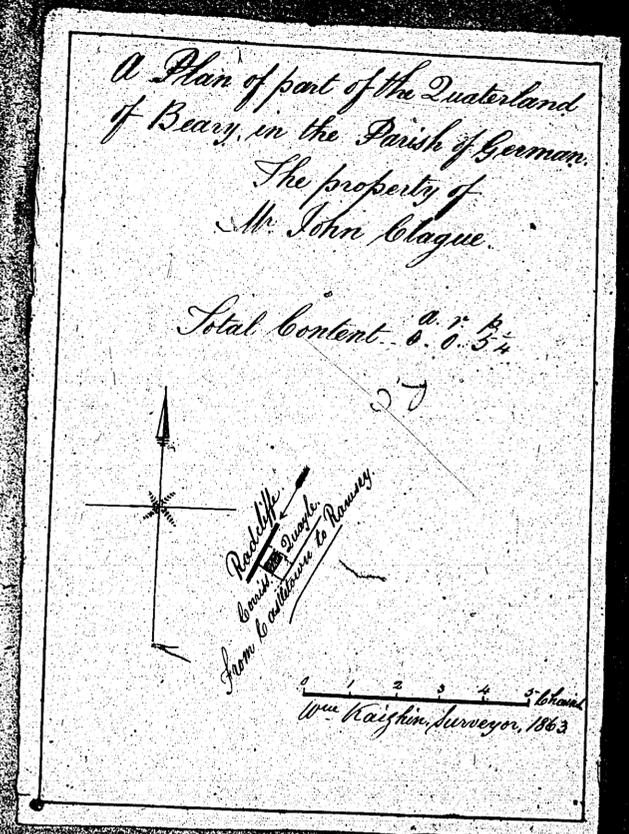 A Plan of part of the Quaterland
of Beary, in the Parish of German.
The property of
Mr. John Clague.
a. r. p.
Total Content 0. 0. 5 1/4
Radcliffe
Quayle.
Corriss.
From Castletown to Ramsey.
0 1 2 3 4 5 Chains
Wm. Kaighin, Surveyor, 1863.